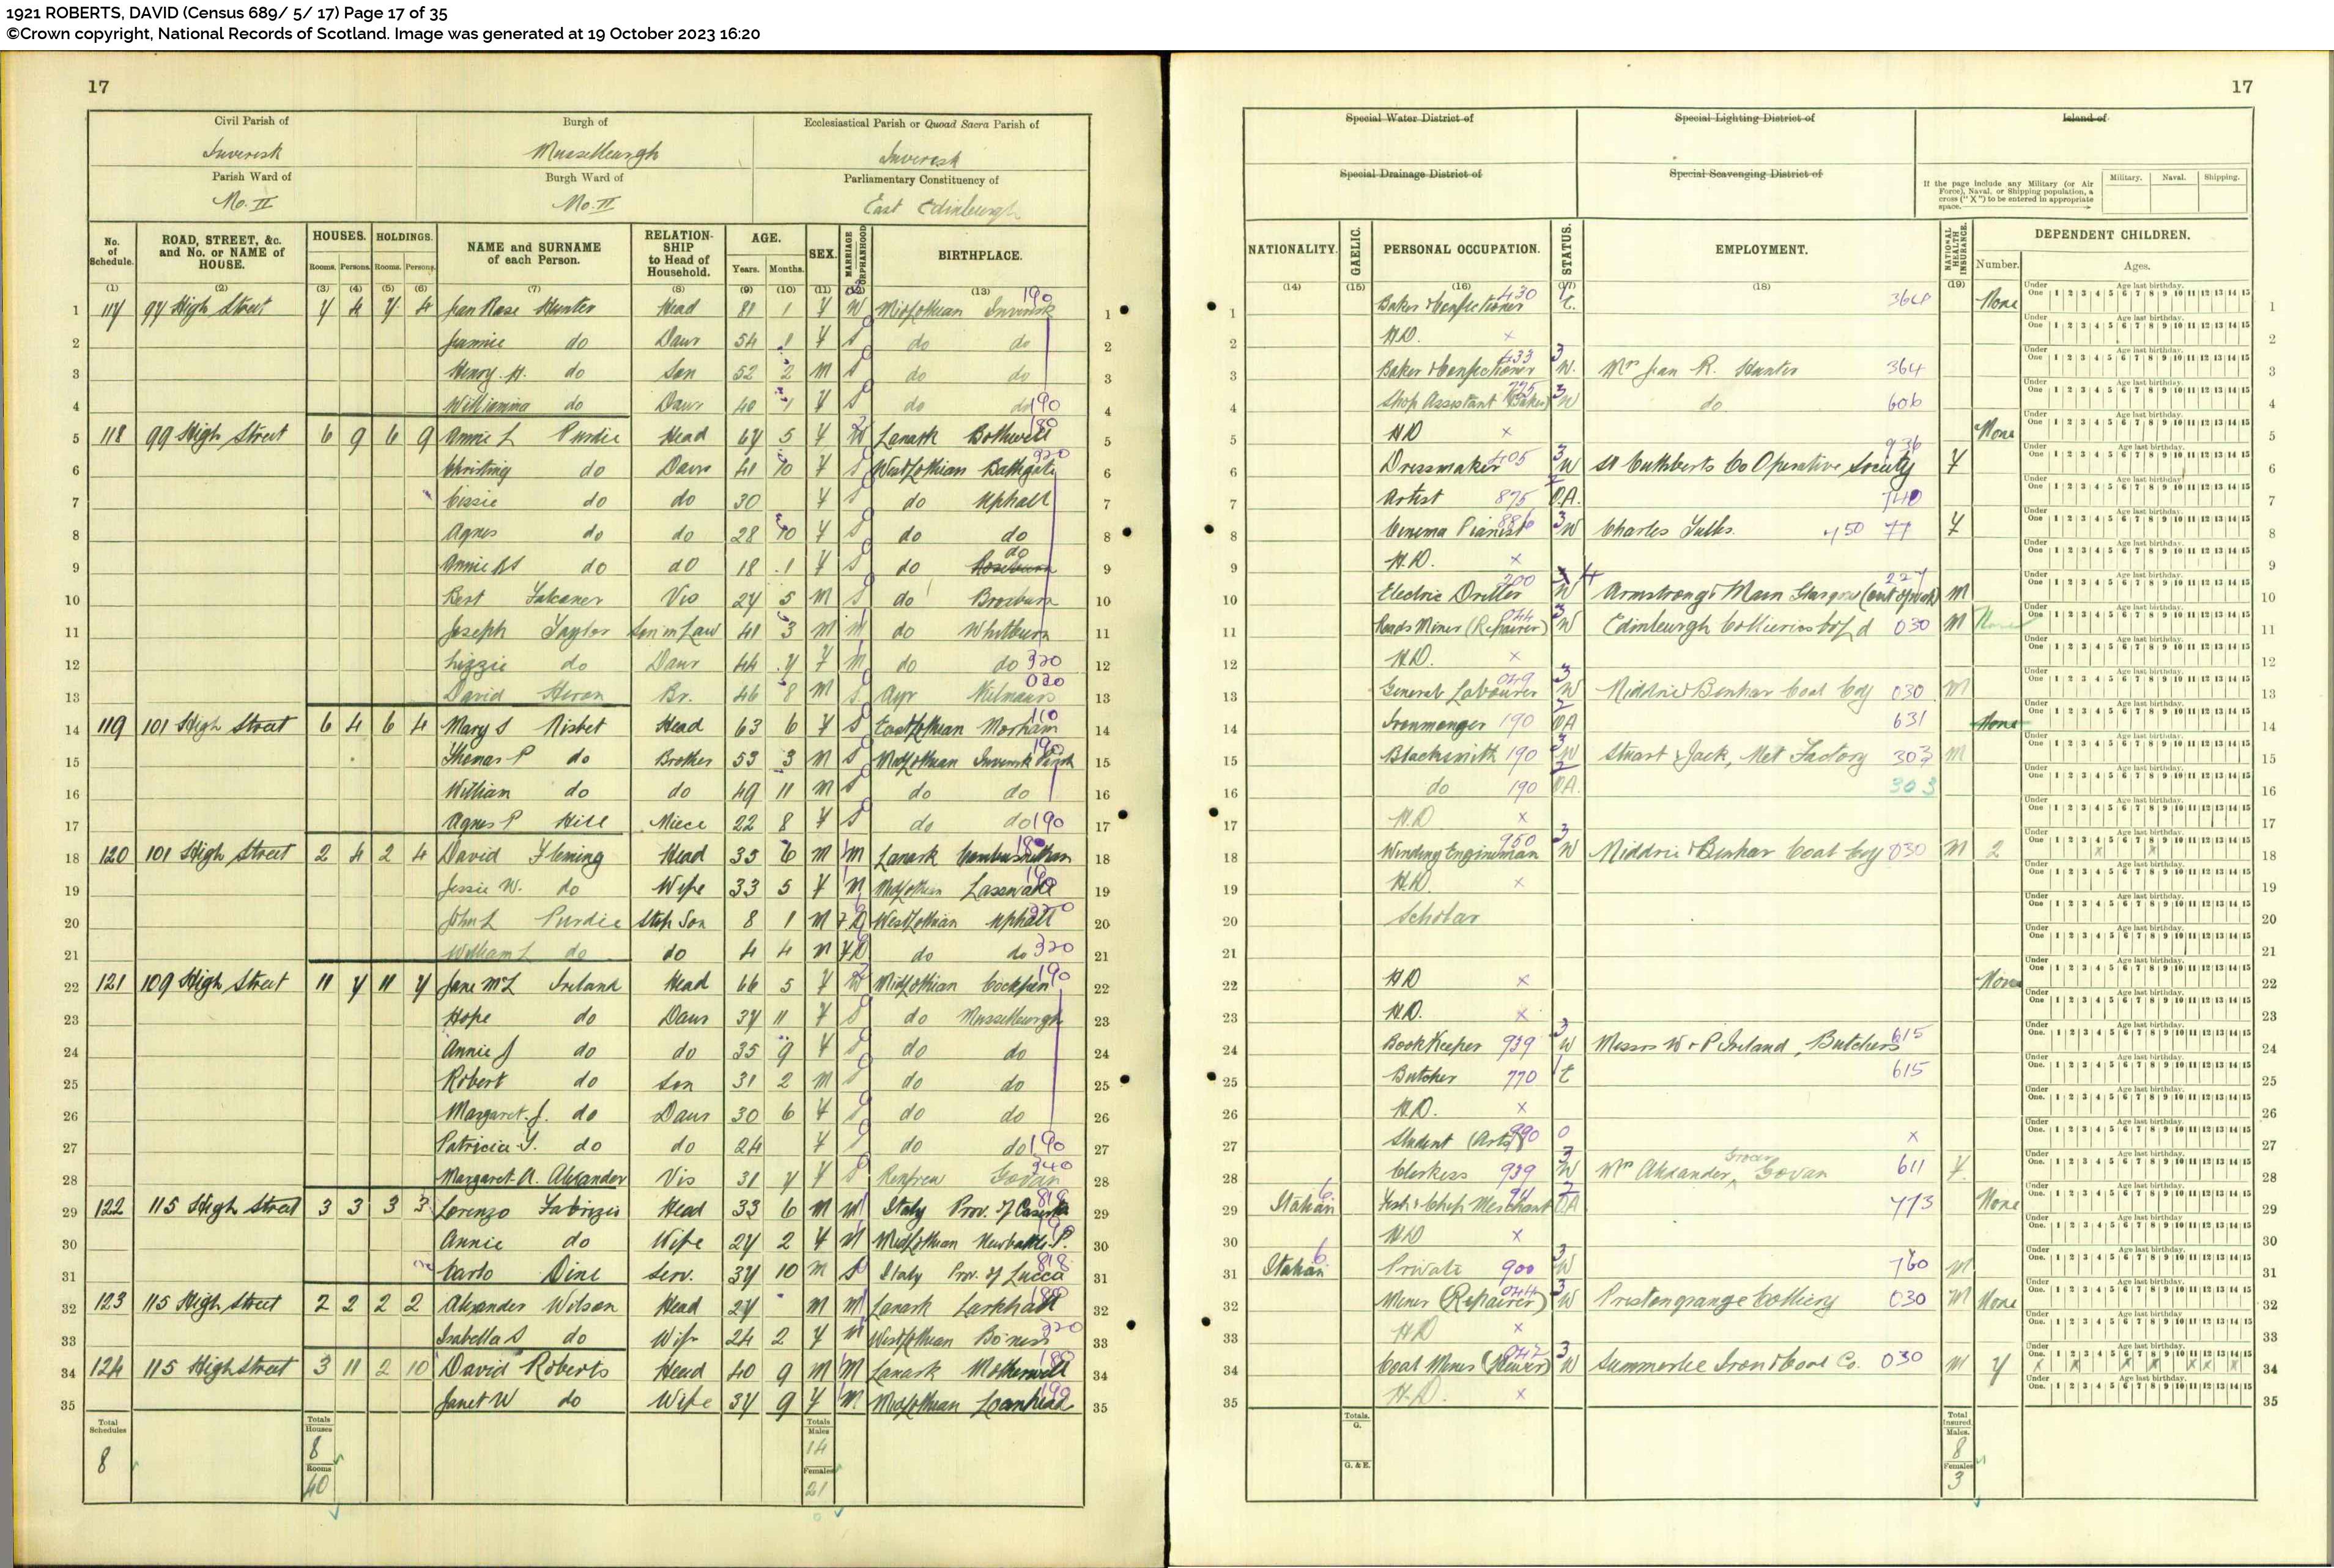 1921 ROBERTS, DAVID (Census 689/ 5/ 17) Page 17 of 35
©Crown copyright, National Records of Scotland. Image was generated at 19 October 2023 16:20
17
Civil Parish of Inveresk
Burgh of Musselburgh
Ecclesiastical Parish or Quoad Sacra Parish of Inveresk
Parish Ward of No. II
Burgh Ward of No. II
Parliamentary Constituency of East Edinburgh
No. of Schedule. ROAD, STREET, &c. and No. or NAME of HOUSE. HOUSES. HOLDINGS. NAME and SURNAME of each Person. RELATIONSHIP to Head of Household. AGE. SEX. MARRIAGE ORPHANHOOD BIRTHPLACE.
Rooms. Persons. Rooms. Persons. Years. Months.
(1) (2) (3) (4) (5) (6) (7) (8) (9) (10) (11) (13)
1 117 97 High Street 7 4 7 4 Jean Rose Hunter Head 81 1 F W Midlothian Inveresk 190 1
2 Jeannie do Daur 54 1 F S do do 2
3 Henry H. do Son 52 2 M S do do 3
4 Williamina do Daur 40 F S do do 190 4
5 118 99 High Street 6 9 6 9 Annie L Purdie Head 67 5 F W Lanark Bothwell 180 5
6 do Daur 41 10 F S West Lothian Bathgate 320 6
7 Cissie do do 30 F S do Uphall 7
8 Agnes do do 28 10 F S do do 8
9 do do 18 1 F S do do 9
10 Bert Falconer Vis 27 5 M S do Broxburn 10
11 Joseph Taylor Son in Law 41 3 M M do Whitburn 11
12 Lizzie do Daur 44 7 F M do do 320 12
13 David Heron Br. 46 8 M S Ayr Kilmaurs 020 13
14 119 101 High Street 6 4 6 4 Mary S Nisbet Head 63 6 F S East Lothian Morham 110 14
15 Thomas P do Brother 53 3 M S Midlothian Inveresk 190 15
16 William do do 49 11 M S do do 16
17 Agnes P Hill Niece 22 8 F S do do 190 17
18 120 101 High Street 2 4 2 4 David Fleming Head 35 6 M M Lanark Cambusnethan 180 18
19 Jessie W. do Wife 33 5 F M Midlothian Lasswade 190 19
20 John L Purdie Step Son 8 1 M West Lothian Uphall 320 20
21 William L do do 4 4 M do do 320 21
22 121 109 High Street 11 7 11 7 Jane McL Ireland Head 66 5 F W Midlothian Cockpen 190 22
23 Hope do Daur 37 11 F S do Musselburgh 23
24 Annie J do do 35 9 F S do do 24
25 Robert do Son 31 2 M S do do 25
26 Margaret J. do Daur 30 6 F S do do 26
27 Patricia Y. do do 24 F S do do 190 27
28 Margaret A. Alexander Vis 31 7 F S Renfrew Govan 340 28
29 122 115 High Street 3 3 3 3 Lorenzo Fabrizio Head 33 6 M M Italy Prov. of Caserta 818 29
30 Annie do Wife 27 2 F M Midlothian Newbattle P. 190 30
31 Carlo Dini Serv. 37 10 M S Italy Prov. of Lucca 818 31
32 123 115 High Street 2 2 2 2 Alexander Wilson Head 27 M M Lanark Larkhall 180 32
33 Isabella S do Wife 24 2 F M West Lothian Bo'ness 320 33
34 124 115 High Street 3 11 2 10 David Roberts Head 40 9 M M Lanark Motherwell 180 34
35 Janet W do Wife 37 9 F M Midlothian Loanhead 190 35
Total Schedules 8
Totals Houses 8
Rooms 40
Totals Males 14
Females 21
17
Special Water District of
Special Lighting District of
Island of
Special Drainage District of
Special Scavenging District of
If the page include any Military (or Air Force), Naval, or Shipping population, a cross ("X") to be entered in appropriate space.
Military. Naval. Shipping.
NATIONALITY. GAELIC. PERSONAL OCCUPATION. STATUS. EMPLOYMENT. NATIONAL HEALTH INSURANCE. DEPENDENT CHILDREN.
Number. Ages.
(14) (15) (16) (17) (18) (19)
Under One 1 2 3 4 5 6 7 8 9 10 11 12 13 14 15
Age last birthday.
1 Baker & Confectioner 430 E. 364 None 1
2 H.D. x 2
3 Baker & Confectioner 433 W. Mrs Jean R. Hunter 364 3
4 Shop Assistant (Baker) 775 W do 606 4
5 H D x None 5
6 Dressmaker 405 W St Cuthberts Co Operative Society 936 F 6
7 Artist 875 O.A. 740 7
8 Cinema Pianist W Charles 750 F 8
9 H.D. x 9
10 Electric Driller 200 W Armstrong & Main Glasgow (out of work) M 10
11 Roads Miner (Repairer) 044 W Edinburgh Collieries Co Ld 030 M 11
12 H.D. x 12
13 General Labourer 049 W Niddrie & Benhar Coal Coy 030 M 13
14 Ironmonger 190 O A 631 None 14
15 Blacksmith 190 W Stuart & Jack, Net Factory 303 M 15
16 do 190 O A. 303 16
17 H.D x 17
18 Winding Engineman 950 W Niddrie & Benhar Coal Coy 030 M 2 18
19 H.D. x 19
20 Scholar 20
21 21
22 H D x None 22
23 H.D. x 23
24 Book Keeper 939 W Messrs W & P Ireland, Butchers 615 24
25 Butcher 770 E 615 25
26 H.D. x 26
27 Student (Arts) 990 0 x 27
28 Clerkess 939 W Wm Alexander, Grocer Govan 611 F. 28
29 Italian Fish & Chip Merchant O A 773 None 29
30 H D x 30
31 Italian Private 900 W 760 M 31
32 Miner (Repairer) 044 W Prestongrange Colliery 030 M None 32
33 H D x 33
34 Coal Miner (Hewer) 042 W Summerlee Iron & Coal Co. 030 M 7 34
35 H.D. x 35
Totals. G.
G. & E.
Total Insured.
Males. 8
Females 3